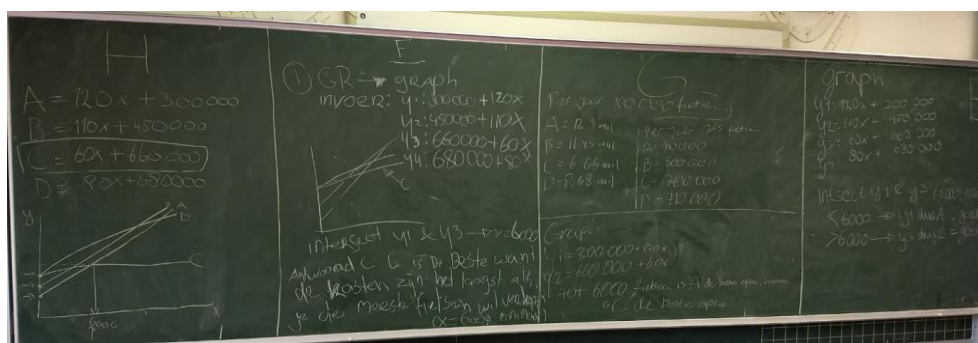 H
A = 120x + 300 000
B = 110x + 450000
C = 60x + 660 000
D = 80x + 680000
y
A
C
x
F
① GR → graph
invoer: y1: 300000 + 120x
y2: 450000 + 110x
y3: 660000 + 60x
y4: 680000 + 80x
C
intersect y1 & y3 → x = 6000
Antwoord C: C is De Beste want
de kosten zijn het laagst als
je de meeste fietsen wil
(x = 6000 minimaal)
G
Per jaar 100 000 fietsen
A = 12.3 mil
B = 11.45 mil
C = 6.66 mil
D = 8.68 mil
Per jaar fietsen
B = 500000
C = 700 000
D = 710000
Graph
y1 = 300 000 + 120x
y2 = 660000 + 60x
tot 6000 fietsen is A de beste optie,
C de beste optie
graph
y1: 120x + 300 000
y2: 110x + 450 000
y3: 60x + 660 000
y4: 80x + 680 000
intsect y1 & y3
< 6000 → y1
> 6000 → y3